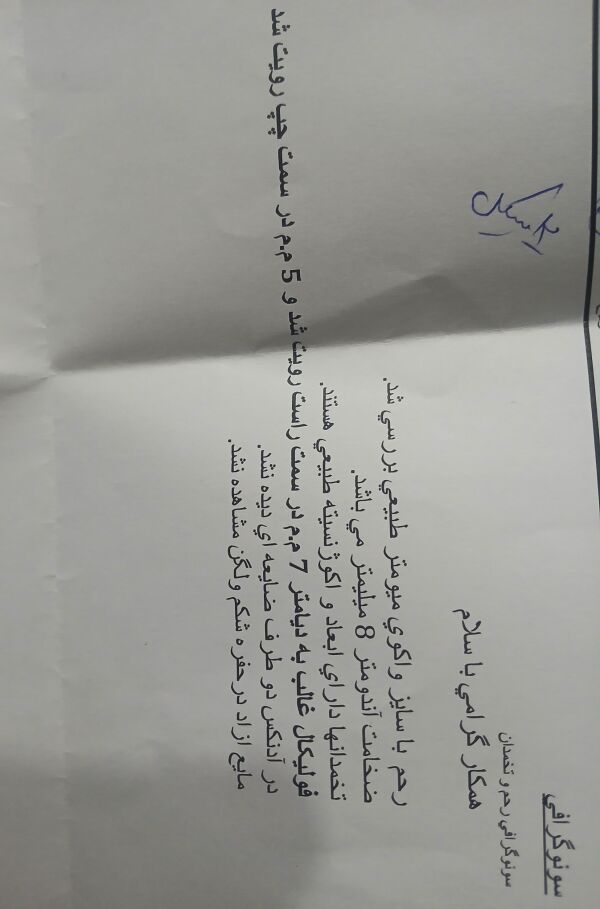 سونوگرافي
سونوگرافي رحم و تخمدان
همکار گرامي با سلام
رحم با سايز واکوي ميومتر طبيعي بررسي شد.
ضخامت آندومتر 8 ميليمتر مي باشد.
تخمدانها داراي ابعاد و اکوژنسيته طبيعي هستند.
فوليکال غالب به ديامتر 7 م.م در سمت راست رويت شد و 5 م.م در سمت چپ رويت شد
در آدنکس دو طرف ضايعه اي ديده نشد.
مايع ازاد در حفره شکم ولگن مشاهده نشد.